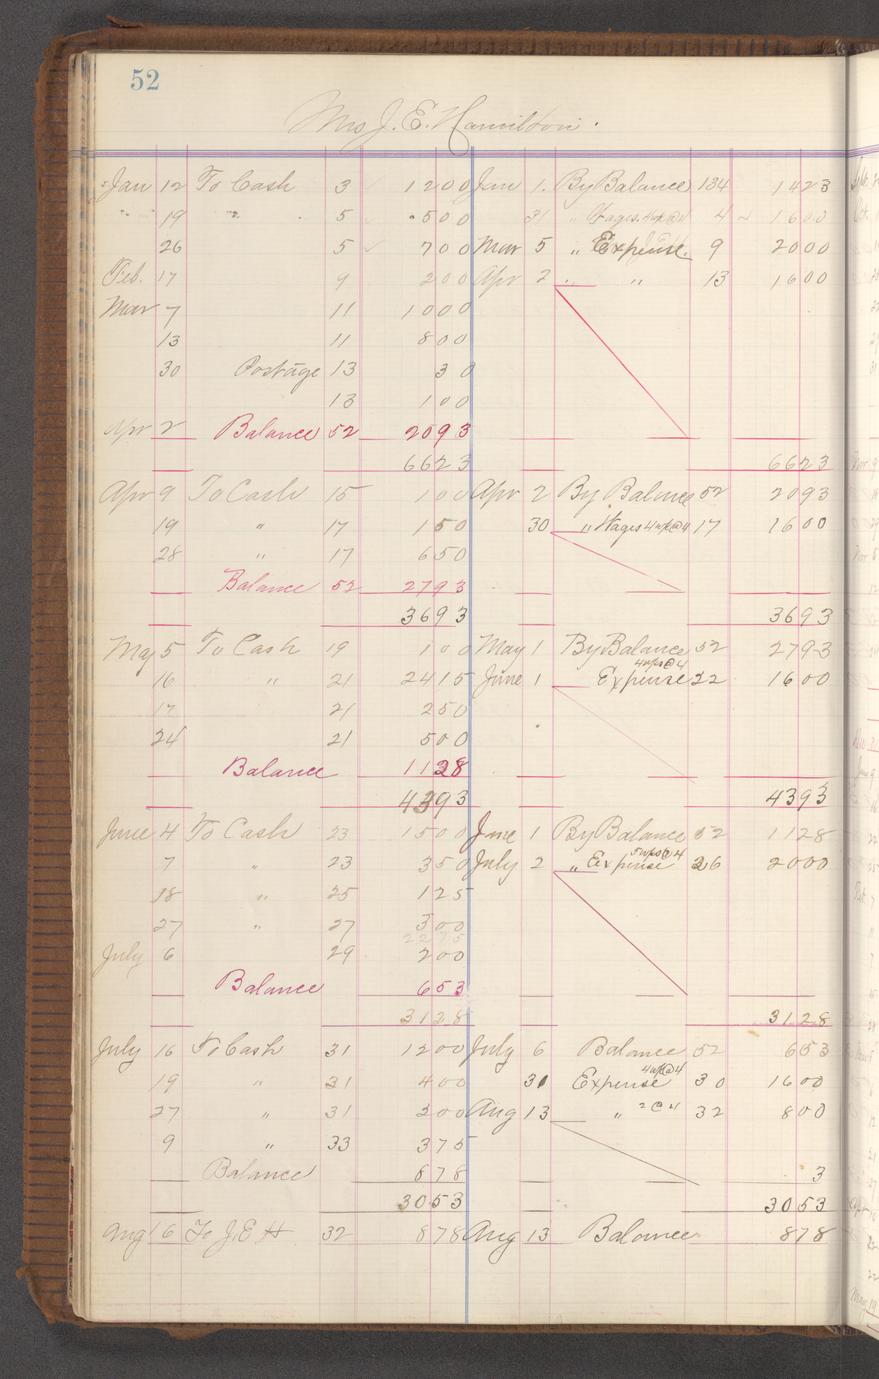 52
Mrs J. E. Hamilton.
Jan 12 To Cash 3 1200 Jan 1. By Balance 134 1423
" 19 " 5 500 31 " Wages 4wk@4 4 1600
26 5 700 Mar 5 " Expense 9 2000
Feb. 17 9 200 Apr 2 " " 13 1600
Mar 7 11 1000
13 11 800
30 Postage 13 30
13 100
Apr 2 Balance 52 2093
6623 6623
Apr 9 To Cash 15 100 Apr 2 By Balance 52 2093
19 " 17 150 30 " Wages 4wk@4 17 1600
28 " 17 650
Balance 52 2793
3693 3693
May 5 To Cash 19 100 May 1 By Balance 52 2793
4wks@4
16 " 21 2415 June 1 Expense 22 1600
17 21 250
24 21 500
Balance 1128
4393 4393
June 4 To Cash 23 1500 June 1 By Balance 52 1128
5wks@4
7 " 23 350 July 2 " Expense 26 2000
18 " 25 125
27 " 27 300
2275
July 6 29 200
Balance 653
3128 3128
July 16 To Cash 31 1200 July 6 Balance 52 653
4wk@4
19 " 31 400 31 Expense 30 1600
27 " 31 200 Aug 13 " 2@4 32 800
9 " 33 375
Balance 878 3
3053 3053
Aug 6 To J. E. H 32 878 Aug 13 Balance 878